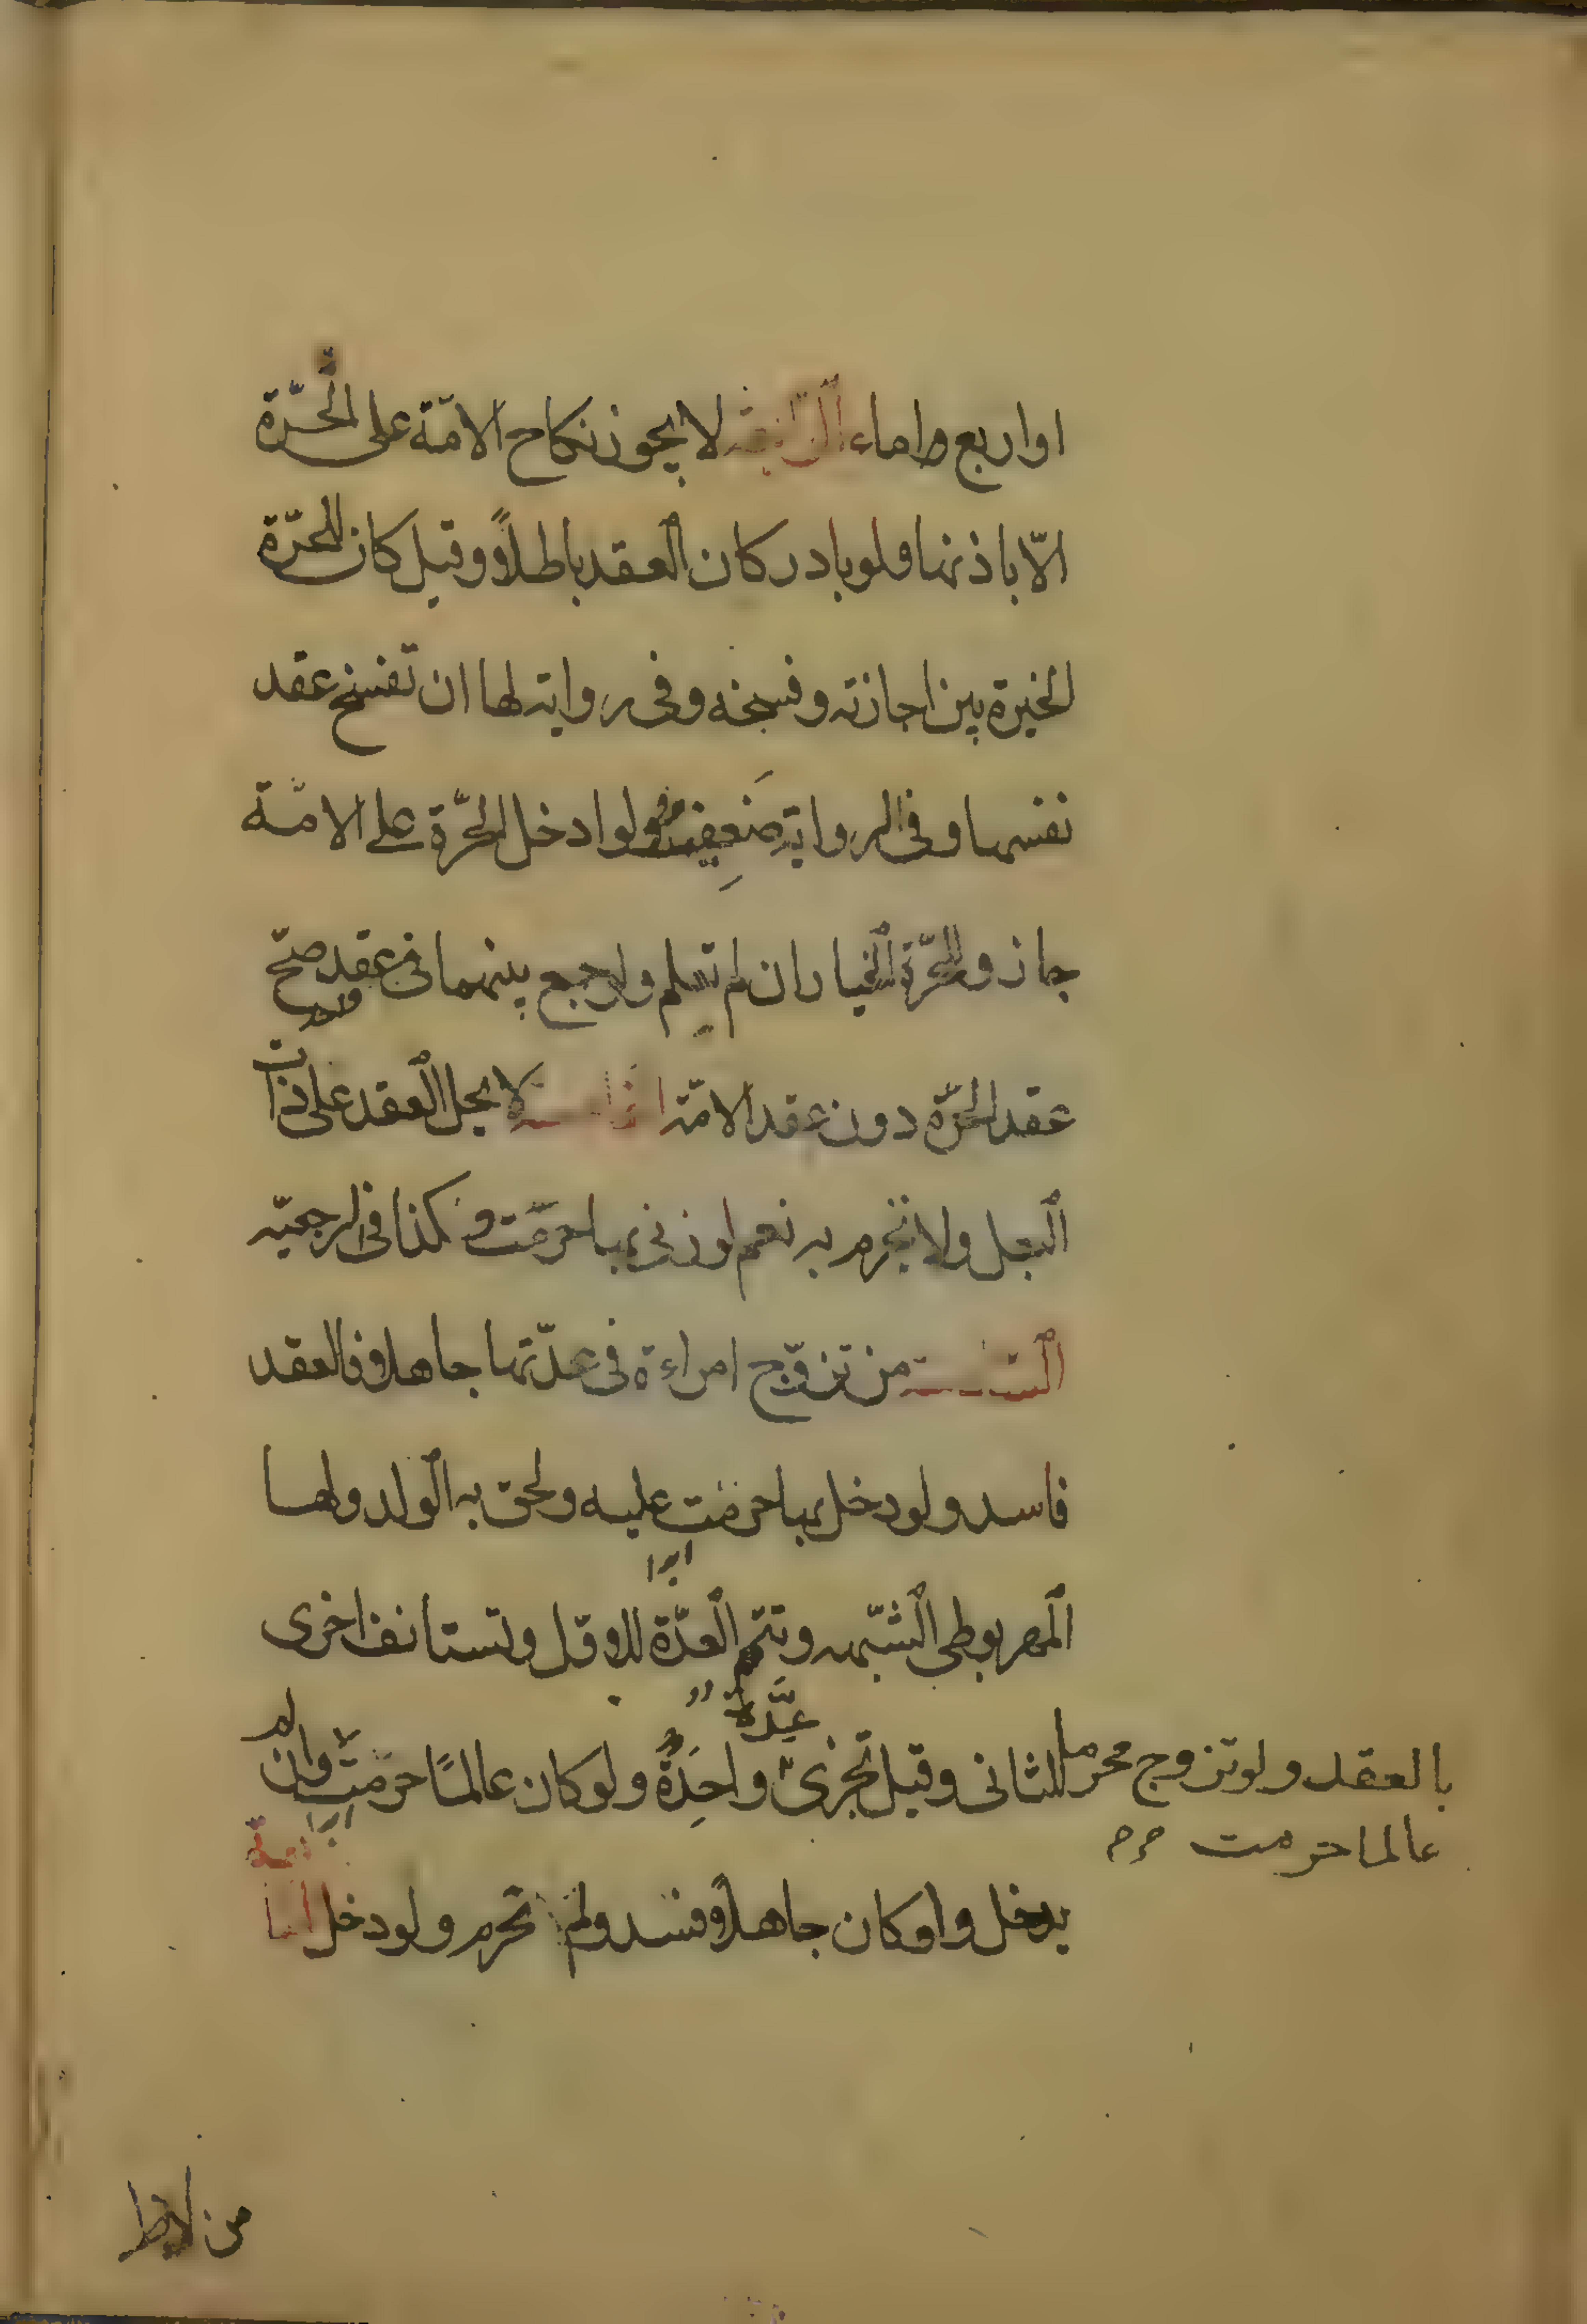 او اربع واماء الرابعة لا يجوز نكاح الامة على الحرّة
الّا باذنها ولو بادر كان العقد باطلاً وقيل كان للحرّة
الخيرة بين اجازته وفسخه وفى رواية لها ان تفسخ عقد
نفسها وفى الرواية ضَعِيفٌ ولو ادخل الحرّة على الامة
جاز وللحرّة الخيار ان لم تعلم ولو جمع بينهما فى عقد صحّ
عقد الحرّة دون عقد الامة الخامسة لا يحل العقد على ذات
البعل ولا تحرم به نعم لو زنى بها حرمت وكذا فى الرجعيّه
السادسة من تزوّج امراءة فى عدّتها جاهلا فالعقد
فاسد ولو دخل بها حرمت عليه ولحق به الولد ولها
ابدا
المهر بوطى الشبهه وتتم العدّة للاوّل وتستانف اخرى
عدّة
للثانى وقيل تجزئ واحِدةٌ ولو كان عالمًا حرمت وان لم
بالعقد ولو تزوج محرما
عالما حرمت
ابدا
يدخل ولو كان جاهلاً فسد ولم تحرم ولو دخل السابعة
من لاط